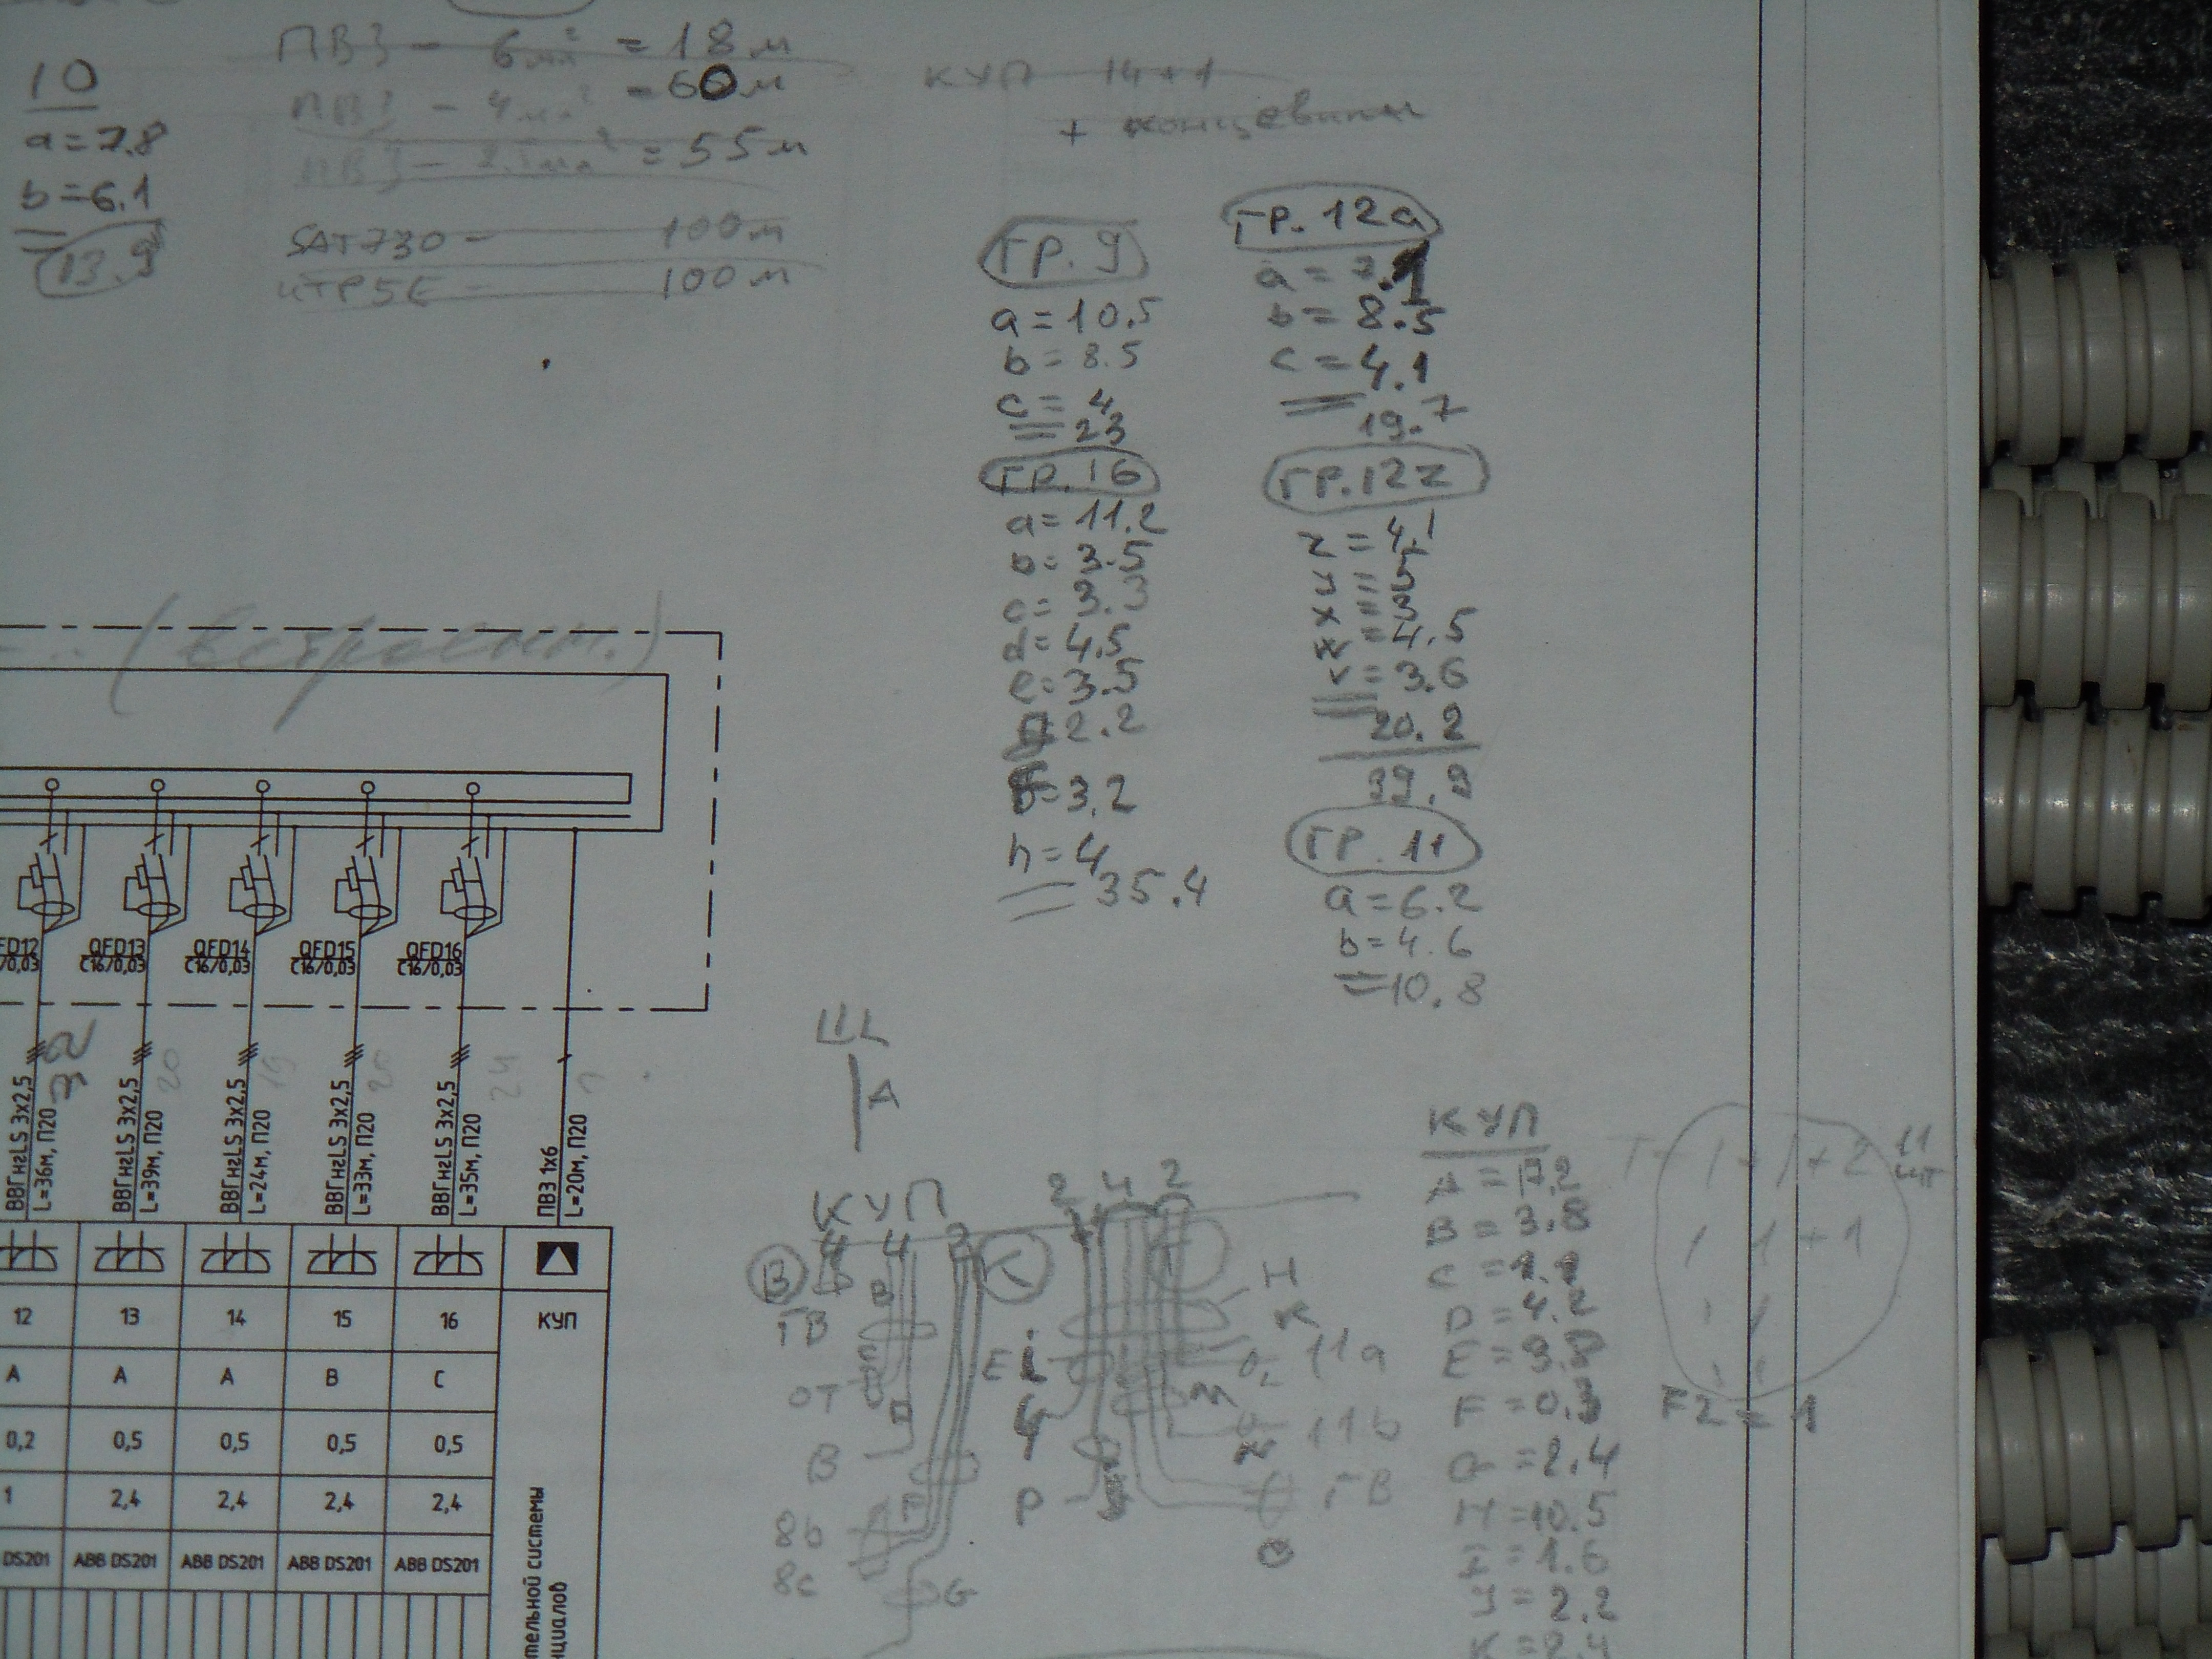 10
a=7.8
b=6.1
13.9
ПВ3 – 6мм² = 18м
ПВ3 – 4мм² = 60м
ПВ3 – 2.5мм² = 55м
SAT730 – 100м
UTP5E – 100м
КУП 14+1
+ концевики
ГР. 9
a = 10.5
b = 8.5
c = 4
= 23
ГР. 16
a = 11.2
b = 3.5
c = 3.3
d = 4.5
e = 3.5
2.2
= 3.2
h = 4
35.4
ГР. 12a
a = 7.1
b = 8.5
c = 4.1
19.7
ГР. 12z
z = 4.1
y = 5
x = 3
= 4.5
v = 3.6
20.2
39.9
ГР. 11
a = 6.2
b = 4.6
= 10.8
(встроенн.)
QFD13
C16/0,03
QFD14
C16/0,03
QFD15
C16/0,03
QFD16
C16/0,03
32
20
19
20
24
ВВГнгLS 3x2,5
L=36м, П20
ВВГнгLS 3x2,5
L=39м, П20
ВВГнгLS 3x2,5
L=24м, П20
ВВГнгLS 3x2,5
L=33м, П20
ВВГнгLS 3x2,5
L=35м, П20
ПВ3 1x6
L=20м, П20
12 13 14 15 16 КУП
A A A B C
0,2 0,5 0,5 0,5 0,5
1 2,4 2,4 2,4 2,4
DS201 ABB DS201 ABB DS201 ABB DS201 ABB DS201
тельной системы
нциалов
ЩL
A
КУП
2 4 2
4 4 2
B
K
B
H
K
ГВ
E
11a
ОТ
M
B
11b
P
ГВ
8b
8c
G
КУП
A = 17.2
B = 3.8
D = 4.2
G = 2.4
H = 10.5
I = 1.6
J = 2.2
K = 2.4
11 шт
F2 = 1